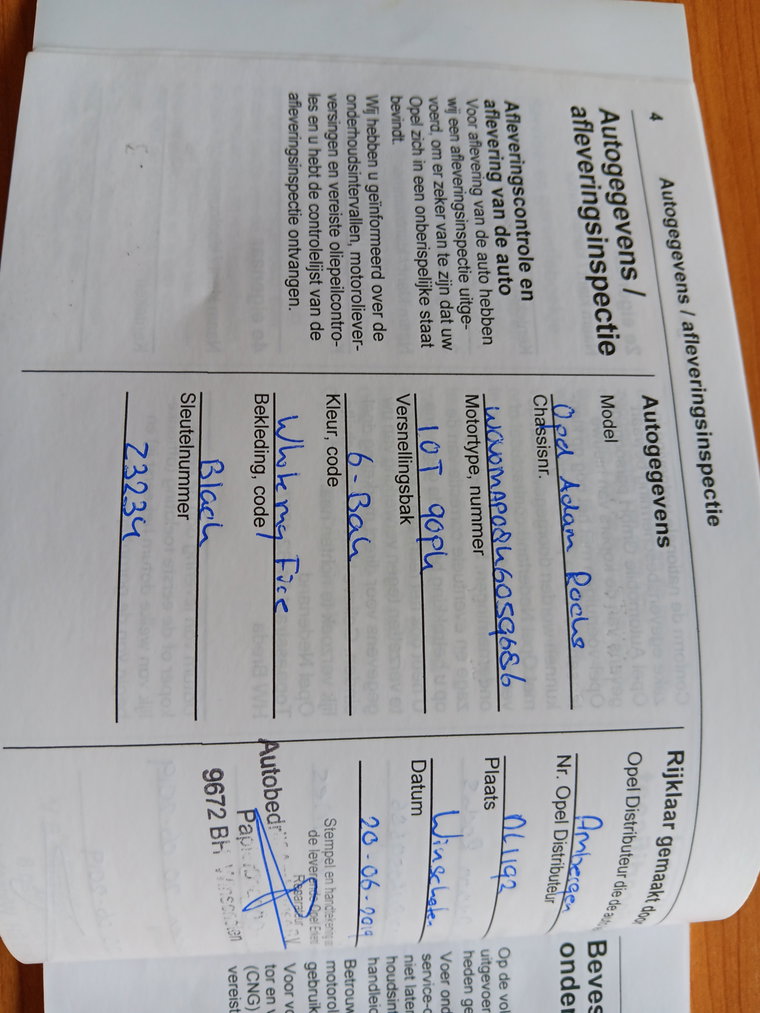 4
Autogegevens / afleveringsinspectie
Autogegevens /
afleveringsinspectie
Afleveringscontrole en
aflevering van de auto
Voor aflevering van de auto hebben
wij een afleveringsinspectie uitge-
voerd, om er zeker van te zijn dat uw
Opel zich in een onberispelijke staat
bevindt.
Wij hebben u geïnformeerd over de
onderhoudsintervallen, motoroliever-
versingen en vereiste oliepeilcontro-
les en u hebt de controlelijst van de
afleveringsinspectie ontvangen.
Autogegevens
Model
Opel Adam Rocks
Chassisnr.
Motortype, nummer
10T 90pk
Versnellingsbak
6-Bak
Kleur, code
White my Face
Bekleding, code
Black
Sleutelnummer
Z3234
Rijklaar gemaakt door
Opel Distributeur die de
Ambergen
Nr. Opel Distributeur
NL1192
Plaats
Winschoten
Datum
20-06-2019
Stempel en handtekening
de leverende Opel
Reparateur
Autobedr
9672 BH
Beves
onder
Op de vol
uitgevoer
heden ge
Voer ond
service-
niet later
houdsint
handleid
Betrouw
motorol
gebruik
Voor vo
tor en v
(CNG)
vereist